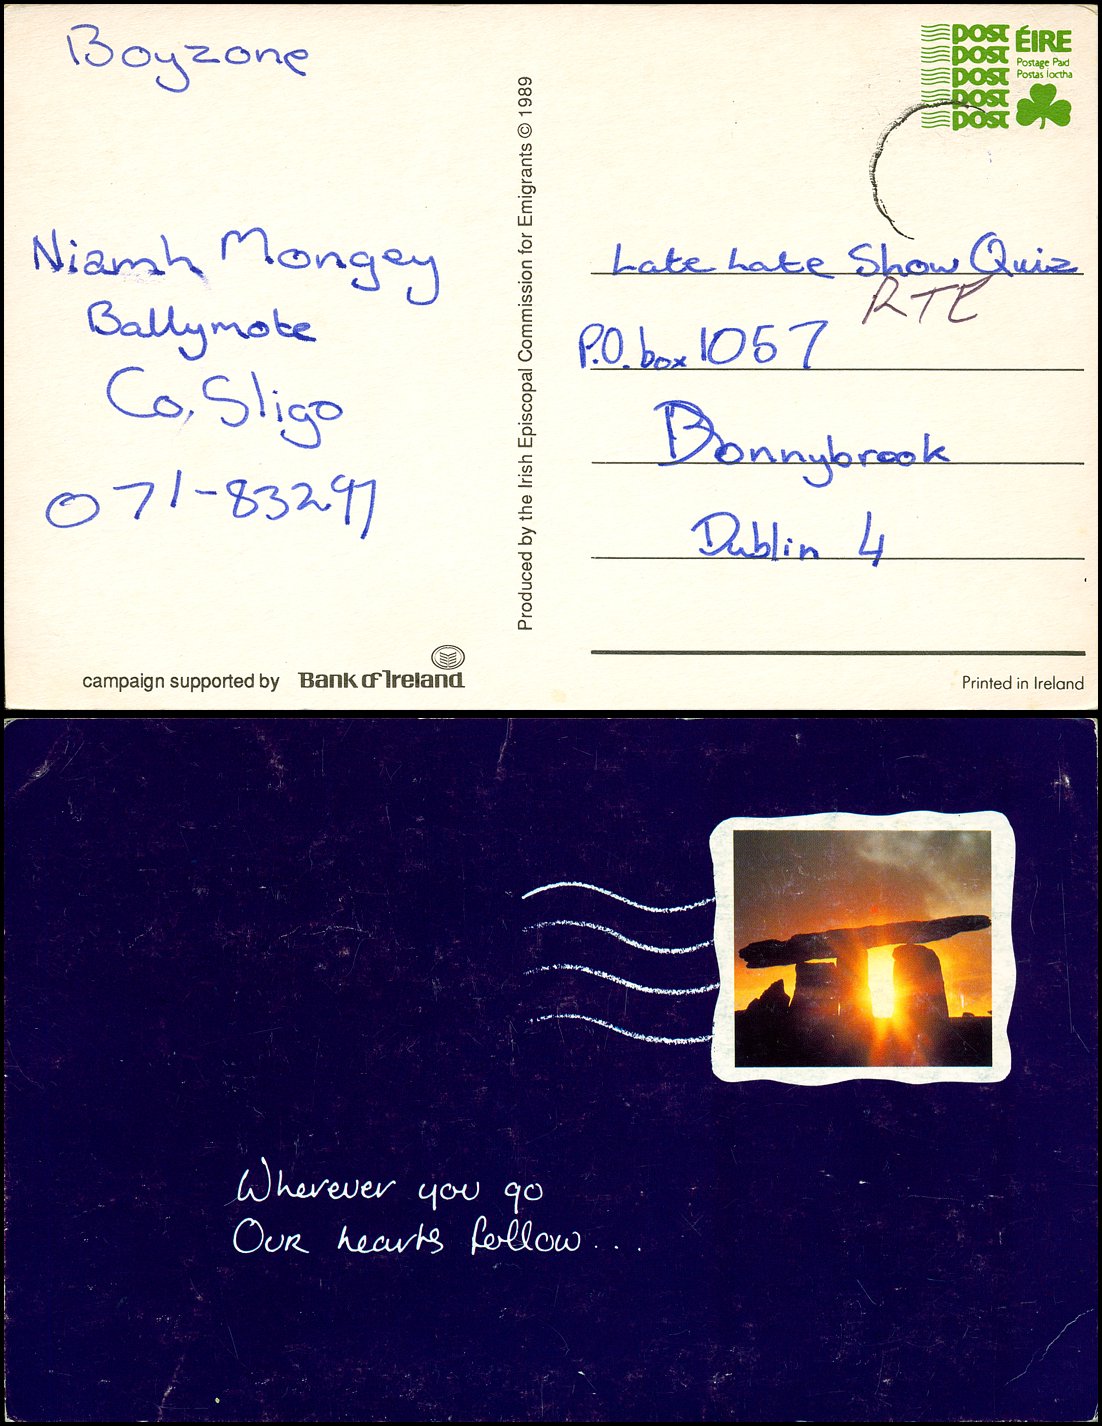 Boyzone
Niamh Mongey
Ballymote
Co. Sligo
071-83297
campaign supported by Bank of Ireland
Produced by the Irish Episcopal Commission for Emigrants © 1989
POST ÉIRE
POST Postage Paid
POST Postas Íoctha
POST
POST
Late Late Show Quiz
RTE
P.O. box 1057
Donnybrook
Dublin 4
Printed in Ireland
Wherever you go
Our hearts follow...